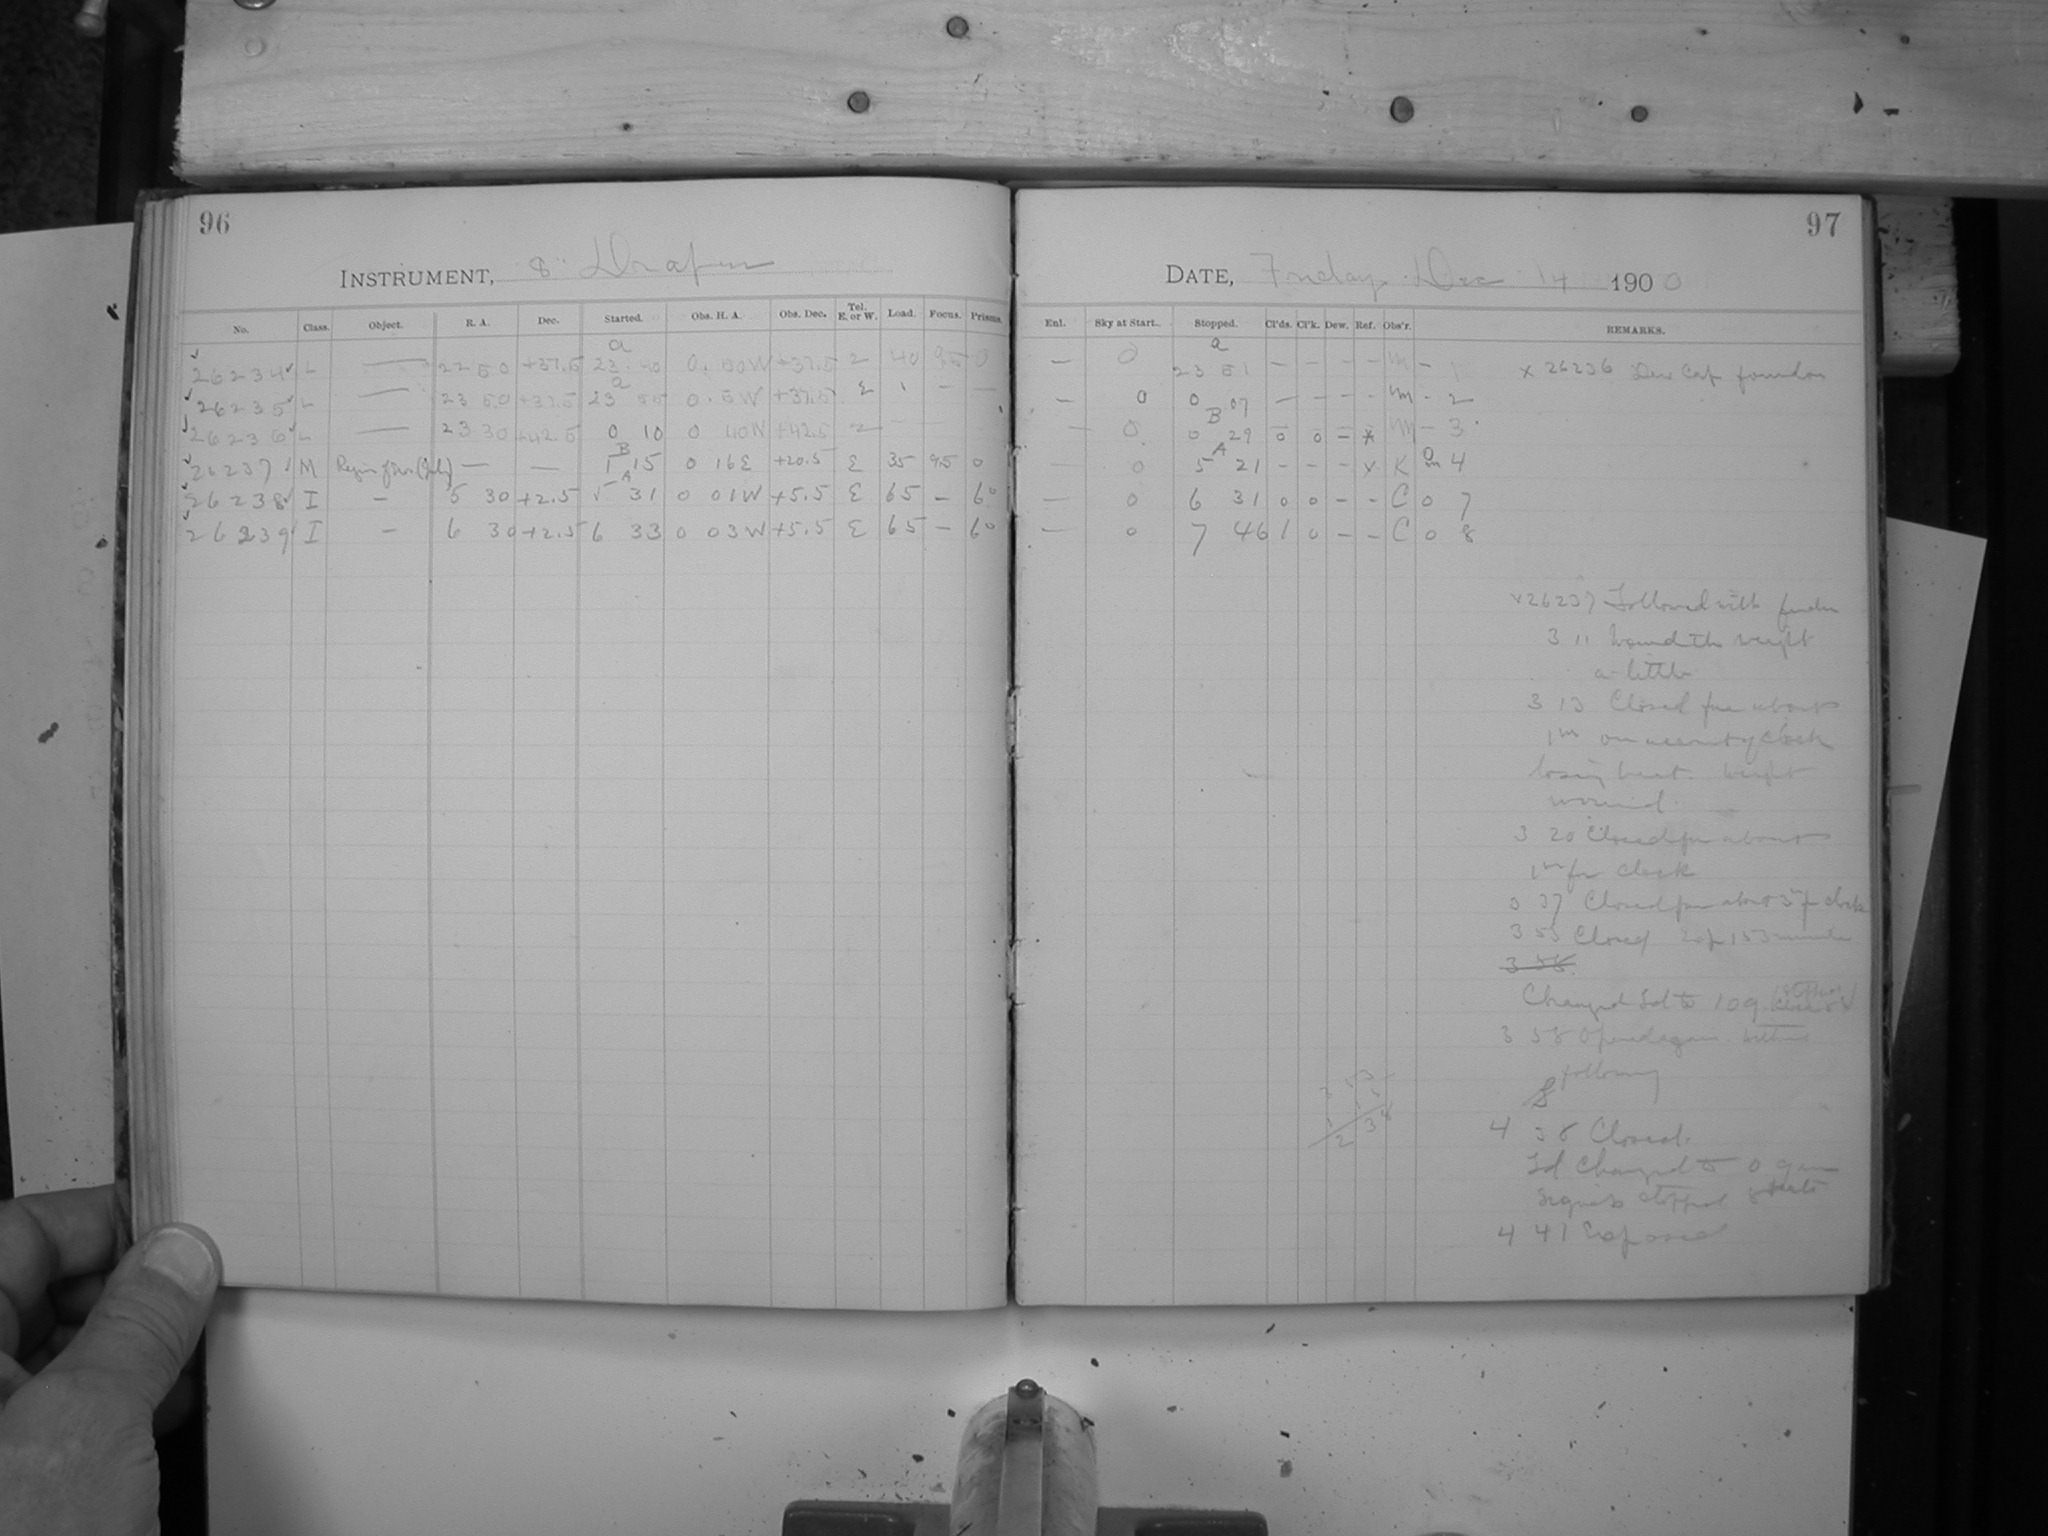 96
INSTRUMENT, 8" Draper
No. Class. Object. R. A. Dec. Started. Obs. H. A. Obs. Dec. Tel. E. or W. Load. Focus. Prisms.
a
26234 L — 22 50 +37.5 23 40 0. 50W +37.5 40 95 0
a
26235 L — 23 50 +37.5 23 55 0. 5W +37.5 E ' — —
26236 L — 23 30 +42.5 0 10 0 40W +42.5
B
26237 M — — 1 15 0 16E +20.5 E 35 95 0
A
26238 I — 5 30 +2.5 5 31 0 01W +5.5 E 65 — 60
26239 I — 6 30 +2.5 6 33 0 03W +5.5 E 65 — 60
97
DATE, Friday Dec 14 1900
Enl. Sky at Start. Stopped. Cl'ds. Cl'k. Dew. Ref. Obs'r. REMARKS.
a
— 0 23 51 — — — — M — 1 x 26236 Dew Cap found on
— 0 0 07 — — — — M - 2
B
— 0 0 29 0 0 = * M - 3
A
— 0 5 21 - - - x K 4
— 0 6 31 0 0 - - C 0 7
— 0 7 46 1 0 - - C 0 8
x26237 Followed with finder
3 11 Wound the weight
a little
3 13 Closed for about
1m on account of clock
losing beat. Weight
wound.
3 20 Closed for about
1m for clock
3 37 Closed for about 3m for clock
3 53 Closed Exp 153 minutes
3 58
Changed to 109
3 58 Opened again
following
4 38 Closed.
Changed to 0
stopped
4 41 Exposed
3 53
1 15
2 38